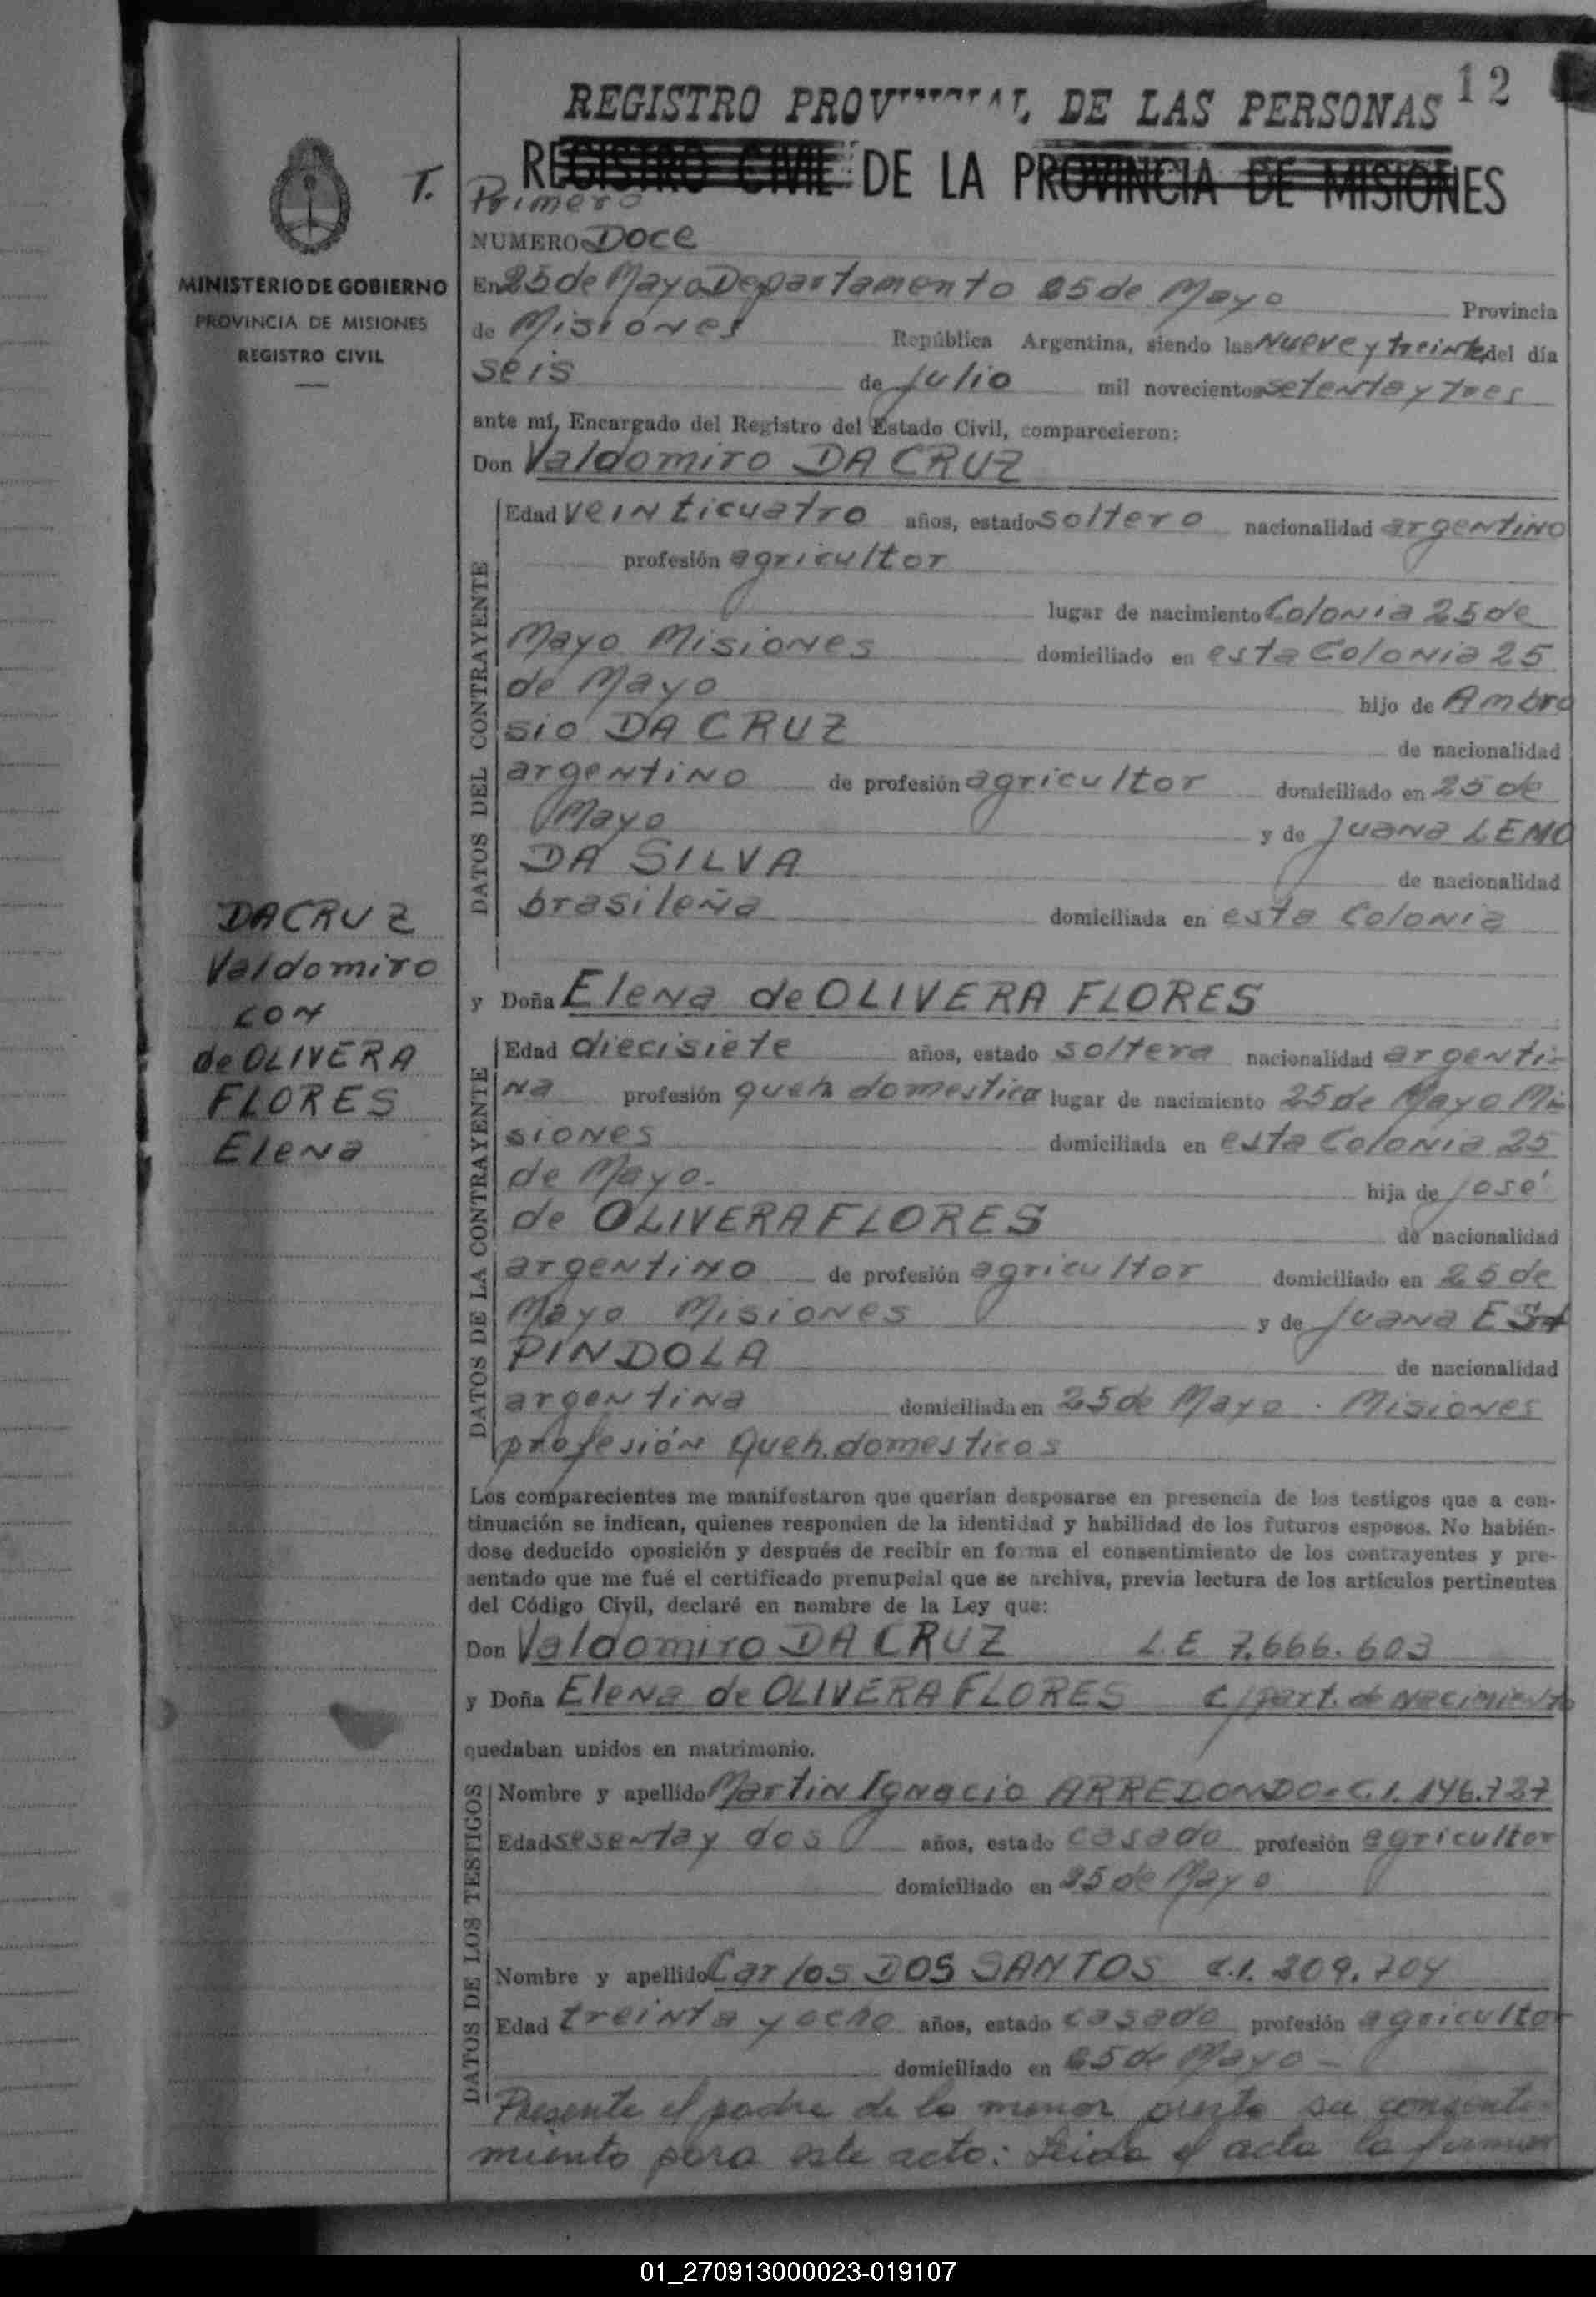 12
REGISTRO PROV AL DE LAS PERSONAS
REGISTRO CIVIL DE LA PROVINCIA DE MISIONES
T.
Primero
NUMERO Doce
MINISTERIO DE GOBIERNO
PROVINCIA DE MISIONES
REGISTRO CIVIL
En 25 de Mayo Departamento 25 de Mayo Provincia
de Misiones República Argentina, siendo las Nueve y treinta del día
seis de Julio mil novecientos setenta y tres
ante mí, Encargado del Registro del Estado Civil, comparecieron:
Don Valdomiro DA CRUZ
DATOS DEL CONTRAYENTE
Edad veinticuatro años, estado soltero nacionalidad argentino
profesión agricultor
lugar de nacimiento Colonia 25 de
Mayo Misiones domiciliado en esta Colonia 25
de Mayo hijo de Ambro
sio DA CRUZ de nacionalidad
argentino de profesión agricultor domiciliado en 25 de
Mayo y de Juana LEMO
DA SILVA de nacionalidad
brasileña domiciliada en esta Colonia
DA CRUZ
Valdomiro
con
de OLIVERA
FLORES
Elena
y Doña Elena de OLIVERA FLORES
DATOS DE LA CONTRAYENTE
Edad diecisiete años, estado soltera nacionalidad argenti-
na profesión queh domestica lugar de nacimiento 25 de Mayo Mi
siones domiciliada en esta Colonia 25
de Mayo.- hija de José
de OLIVERA FLORES de nacionalidad
argentino de profesión agricultor domiciliado en 25 de
Mayo Misiones y de Juana ES
PINDOLA de nacionalidad
argentina domiciliada en 25 de Mayo . Misiones
profesión queh. domesticos
Los comparecientes me manifestaron que querían desposarse en presencia de los testigos que a con-
tinuación se indican, quienes responden de la identidad y habilidad de los futuros esposos. No habién-
dose deducido oposición y después de recibir en forma el consentimiento de los contrayentes y pre-
sentado que me fué el certificado prenupcial que se archiva, previa lectura de los artículos pertinentes
del Código Civil, declaré en nombre de la Ley que:
Don Valdomiro DA CRUZ L.E 7.666.603
y Doña Elena de OLIVERA FLORES c/part. de nacimiento
quedaban unidos en matrimonio.
DATOS DE LOS TESTIGOS
Nombre y apellido Martin Ignacio ARREDONDO - C.I. 146.727
Edad sesenta y dos años, estado casado profesión agricultor
domiciliado en 25 de Mayo
Nombre y apellido Carlos DOS SANTOS C.I. 209.704
Edad treinta y ocho años, estado casado profesión agricultor
domiciliado en 25 de Mayo -
Presente el padre de la menor presta su consenti
miento para este acto: Leida el acta la firman
01_270913000023-019107